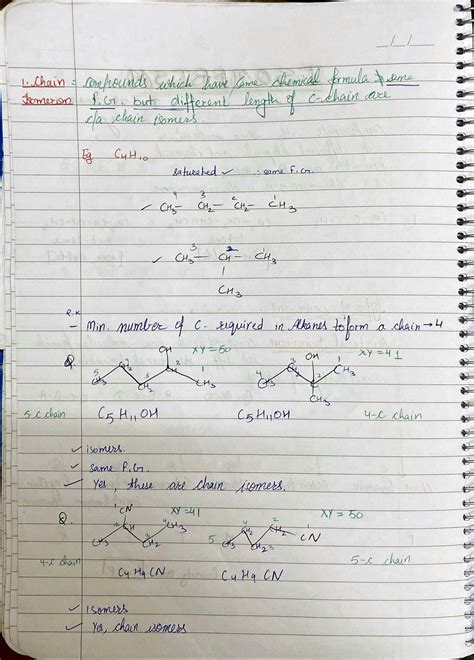 __/__/__
1. Chain = compounds which have same chemical formula & same
Isomerism F.G. but different length of C-chain are
r/a chain isomers
Eg C4H10
saturated ✓ ∴ same F.G.
✓ 4CH3 — 3CH2 — 2CH2 — 1CH3
✓ 3CH3 — 2CH — 1CH3
CH3
- Min. number of C- required in Alkanes to form a chain → 4
Q. OH XY=50 OH XY=41
5 CH3 4 CH2 3 CH2 2 CH 1 CH3 4 CH3 3 CH2 2 C 1 CH3
CH3
5-C chain C5H11OH C5H11OH 4-C chain
✓ isomers.
✓ Same F.G.
✓ Yes, these are chain isomers.
Q. 1 CN XY=41 XY=50
CH3 2 CH 3 CH2 4 CH3 5 CH3 4 CH2 3 CH2 2 CH2 1 CN
4-C chain 5-C chain
C4H9CN C4H9CN
✓ isomers
✓ Yes, chain isomers